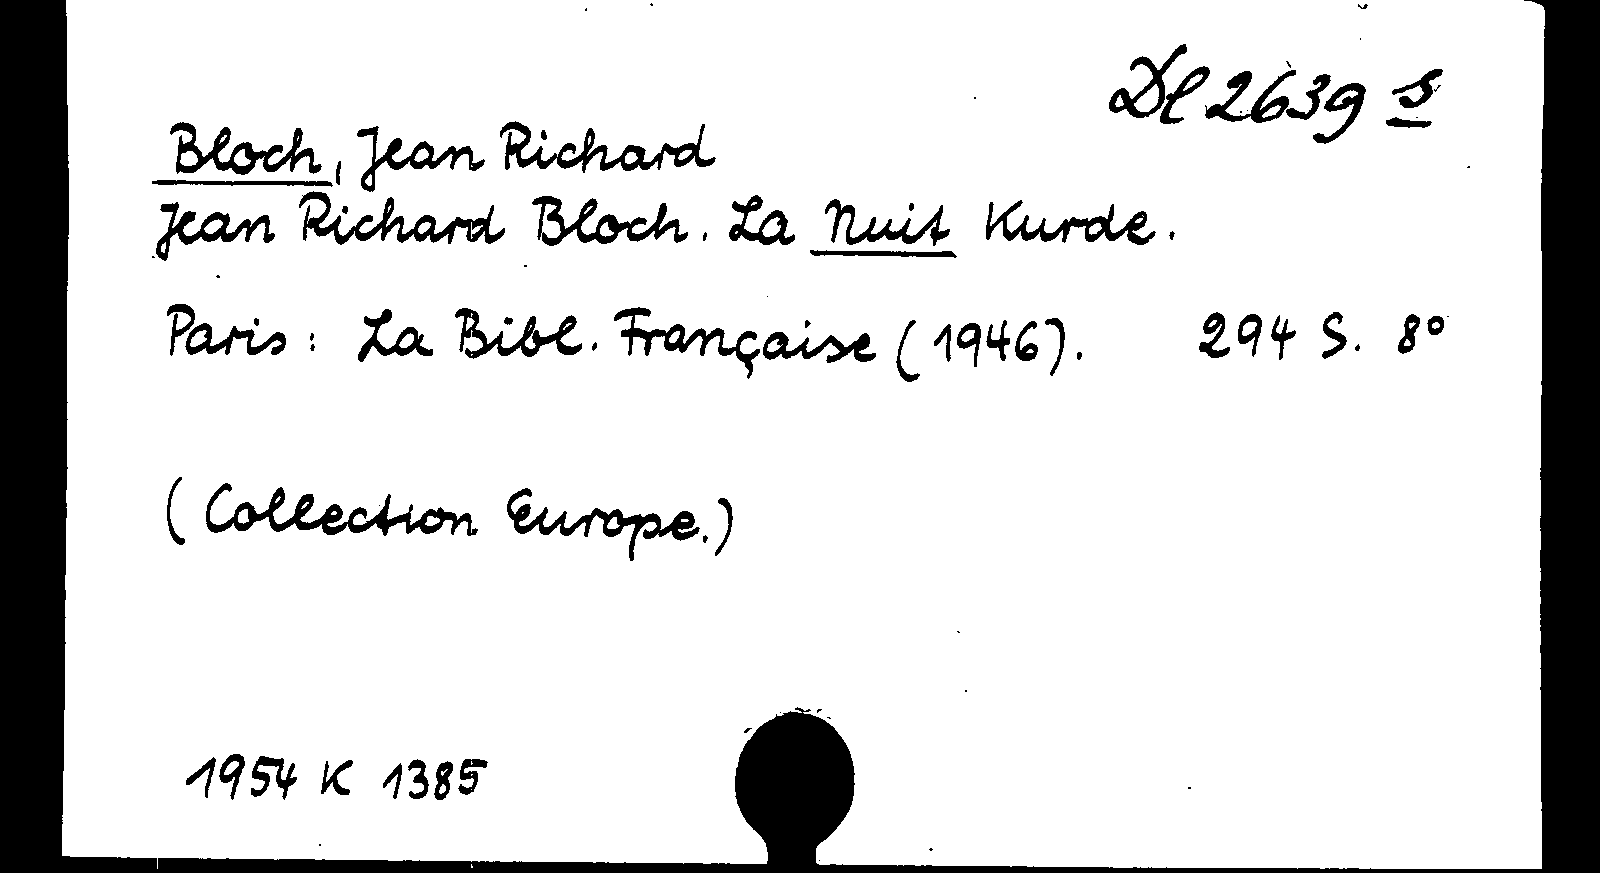 Dl 2639 s
Bloch, Jean Richard
Jean Richard Bloch. La Nuit Kurde.
Paris: La Bibl. Française (1946). 294 S. 8°
(Collection Europe.)
1954 K 1385